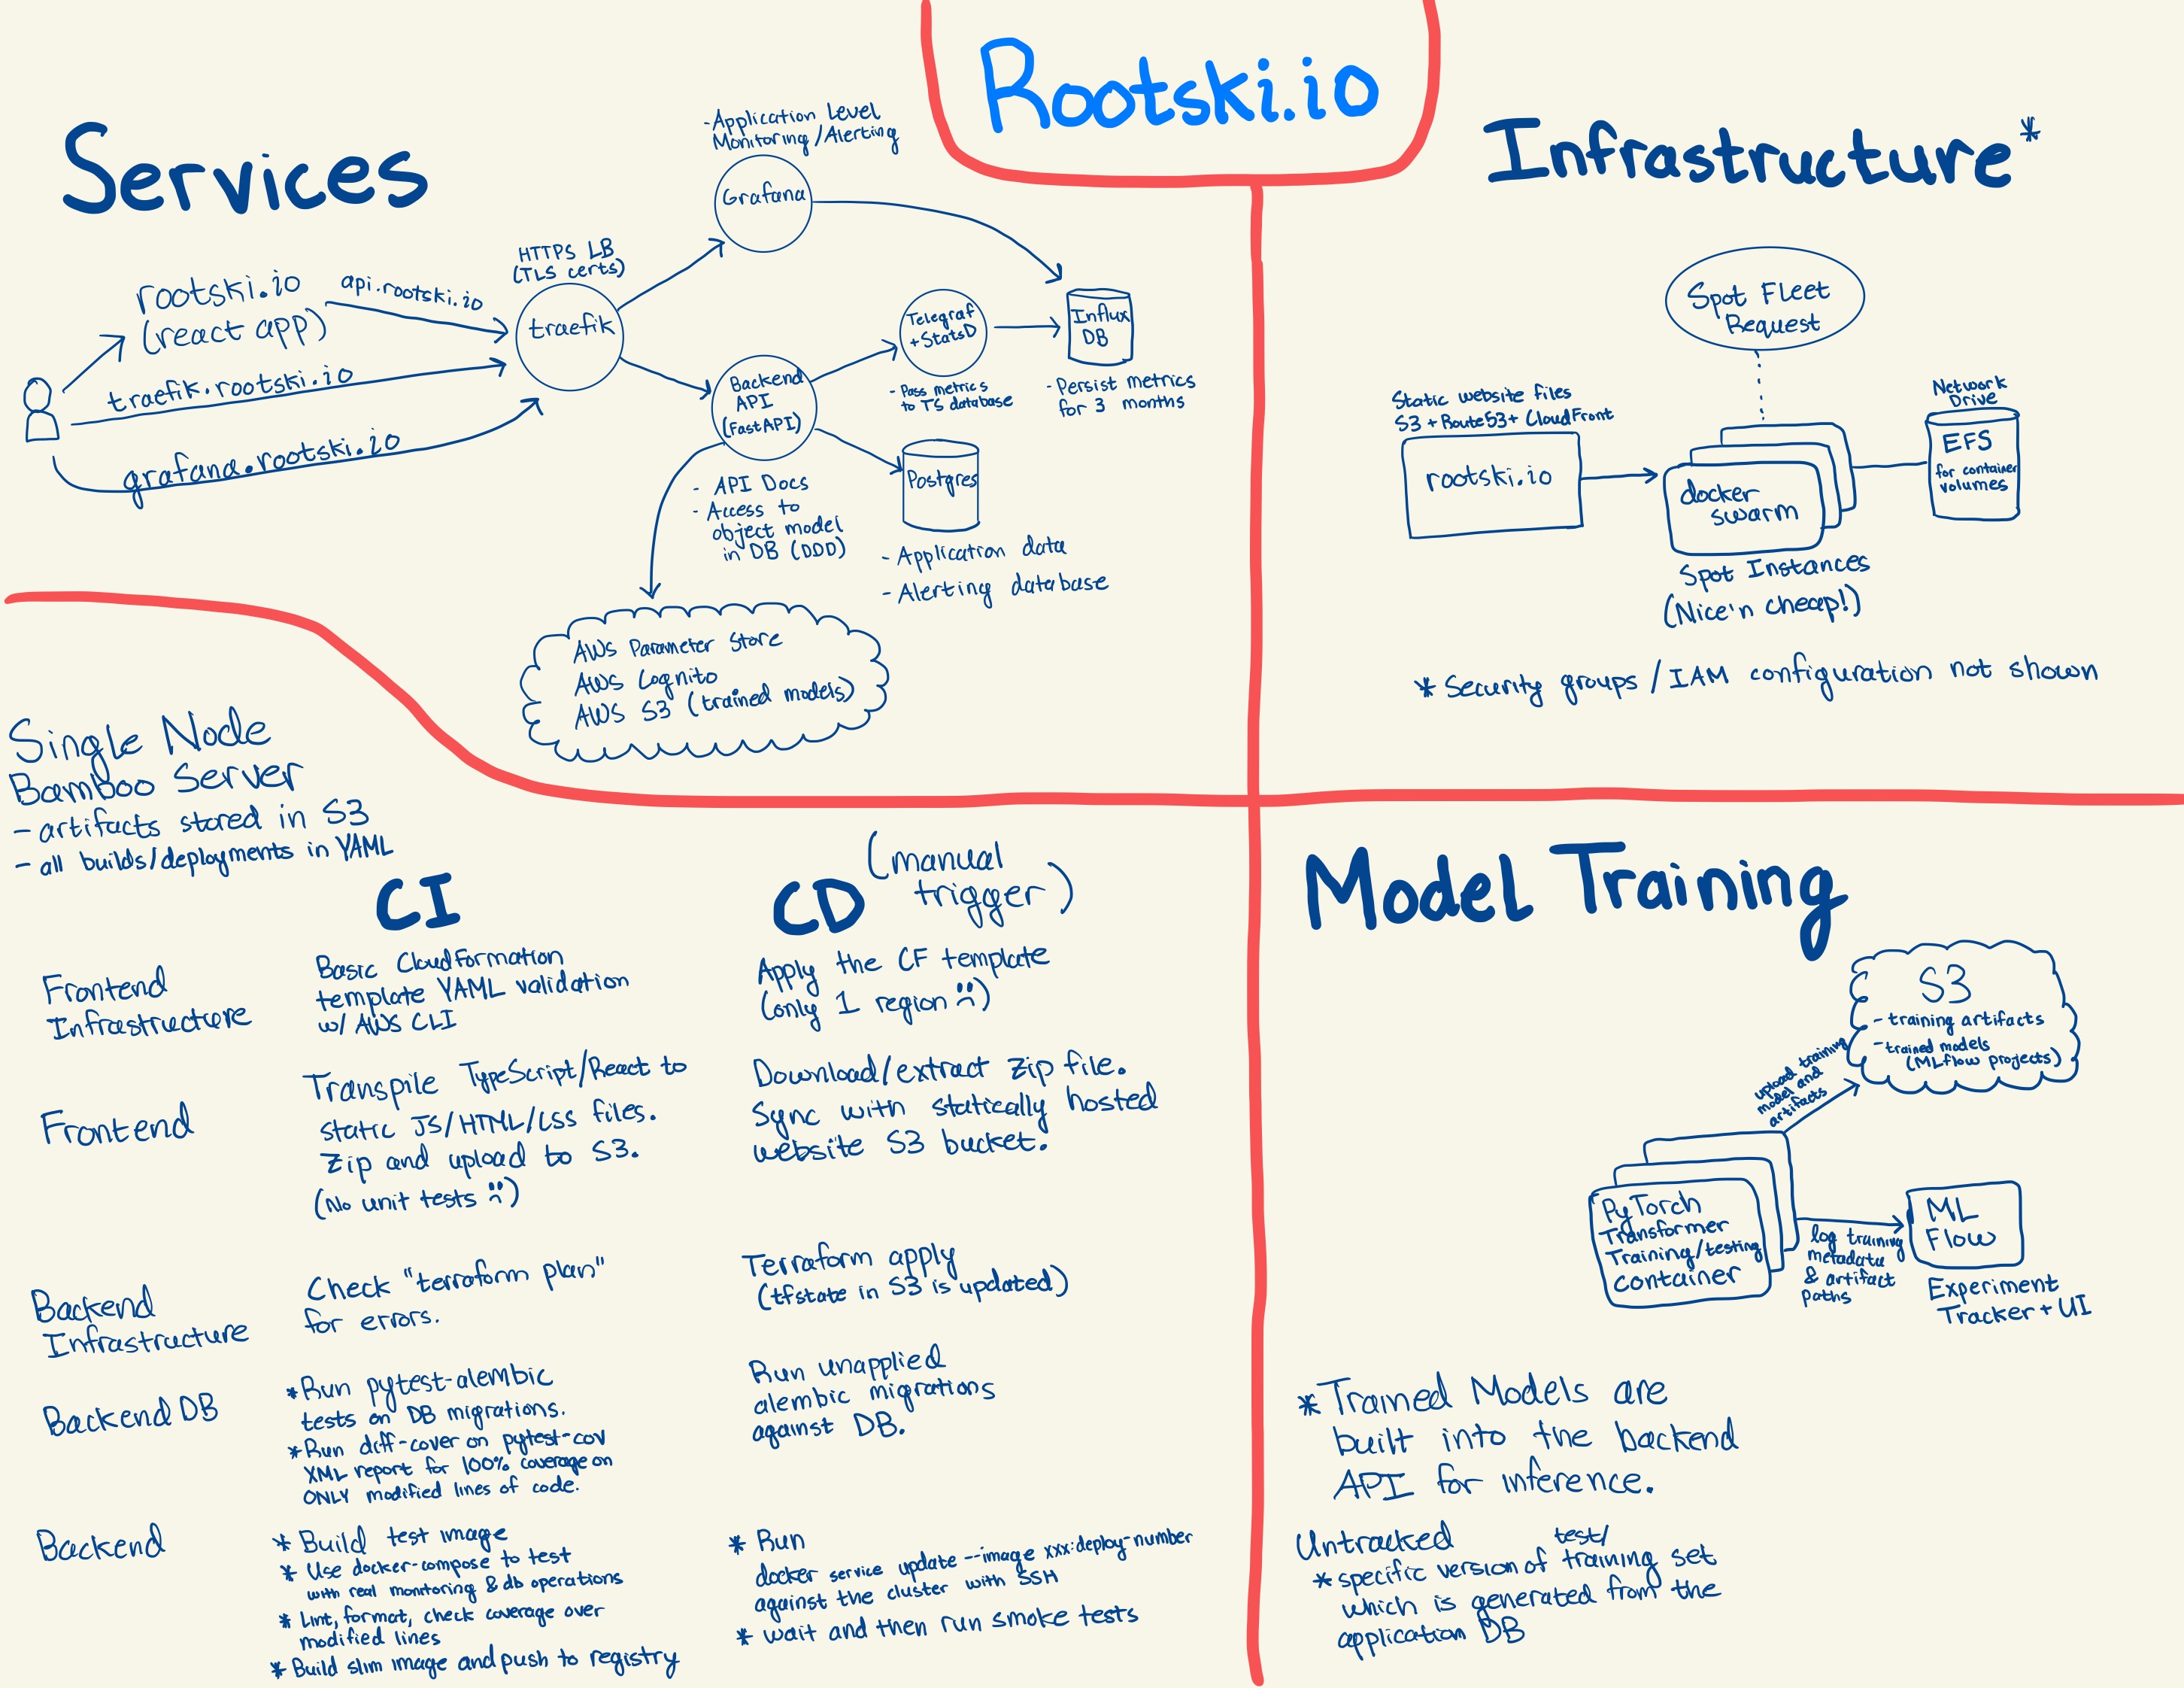 Rootski.io
Services
-Application Level
Monitoring/Alerting
Grafana
HTTPS LB
(TLS certs)
traefik
rootski.io
(react app)
api.rootski.io
traefik.rootski.io
grafana.rootski.io
Backend
API
(FastAPI)
- API Docs
- Access to
object model
in DB (DDD)
Telegraf
+StatsD
- Pass metrics
to TS database
Influx
DB
- Persist metrics
for 3 months
Postgres
- Application data
- Alerting database
AWS Parameter Store
AWS Cognito
AWS S3 (trained models)
Infrastructure*
Spot Fleet
Request
Static website files
S3 + Route53 + CloudFront
rootski.io
docker
swarm
Spot Instances
(Nice'n cheap!)
Network
Drive
EFS
for container
volumes
* Security groups / IAM configuration not shown
Single Node
Bamboo Server
- artifacts stored in S3
- all builds/deployments in YAML
CI
CD
(manual
trigger)
Frontend
Infrastructure
Basic CloudFormation
template YAML validation
w/ AWS CLI
Apply the CF template
(only 1 region :()
Frontend
Transpile TypeScript/React to
static JS/HTML/CSS files.
Zip and upload to S3.
(No unit tests :()
Download/extract zip file.
Sync with statically hosted
website S3 bucket.
Backend
Infrastructure
Check "terraform plan"
for errors.
Terraform apply
(tfstate in S3 is updated)
Backend DB
*Run pytest-alembic
tests on DB migrations.
*Run diff-cover on pytest-cov
XML report for 100% coverage on
ONLY modified lines of code.
Run unapplied
alembic migrations
against DB.
Backend
* Build test image
* Use docker-compose to test
with real monitoring & db operations
* Lint, format, check coverage over
modified lines
* Build slim image and push to registry
* Run
docker service update --image xxx:deploy-number
against the cluster with SSH
* wait and then run smoke tests
Model Training
S3
- training artifacts
- trained models
(MLflow projects)
upload training
model and
artifacts
PyTorch
Transformer
Training/testing
container
log training
metadata
& artifact
paths
ML
Flow
Experiment
Tracker + UI
*Trained Models are
built into the backend
API for inference.
Untracked
test/
* specific version of training set
which is generated from the
application DB